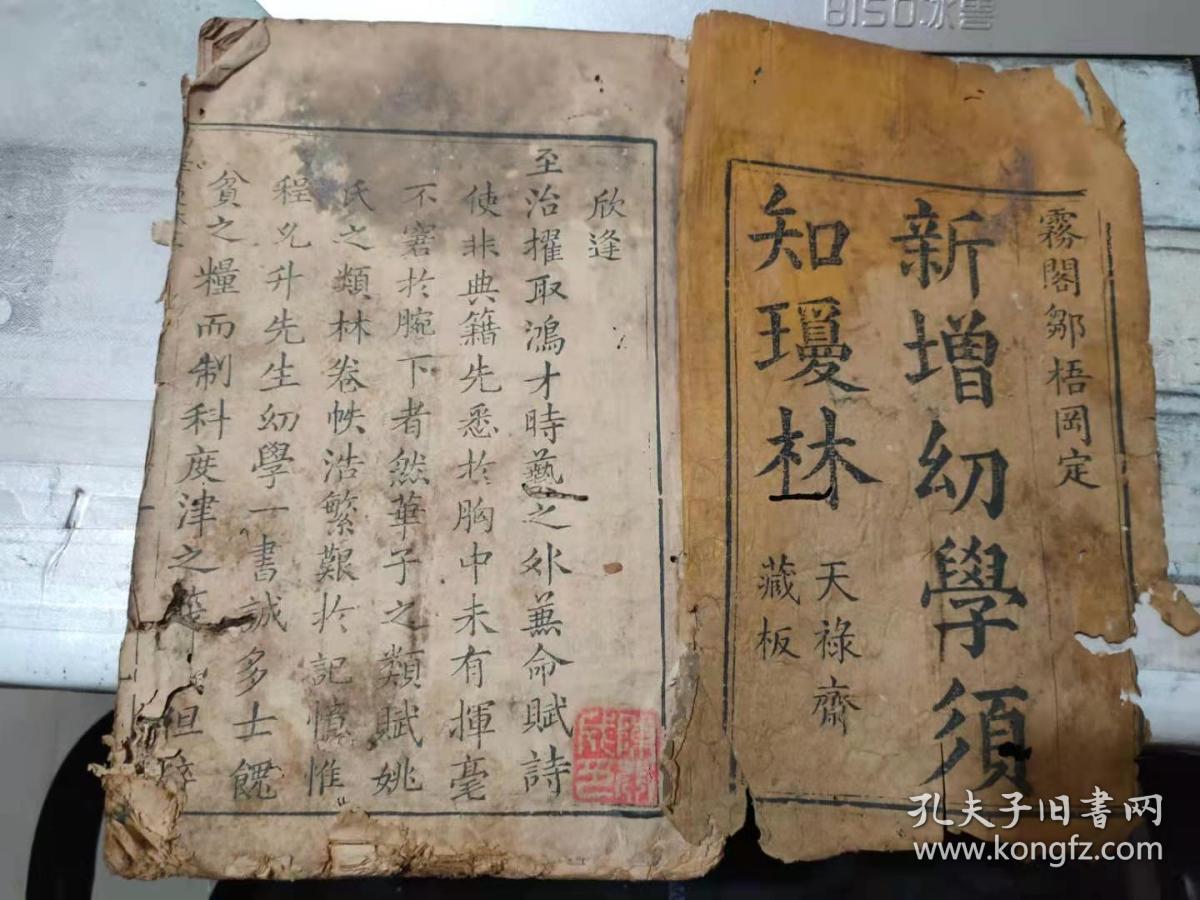 霧閣鄒梧岡定
新增幼學須
知瓊林
天祿齋
藏板
欣逢
至治擢取鴻才時藝之外蕪命賦詩
使非典籍先悉於胸中未有揮毫
不窘於腕下者然華子之類賦姚
氏之類林卷帙浩繁艱於記憶惟
程允升先生幼學一書誠多士餽
貧之糧而制科度津之筏
孔夫子旧书网
www.kongfz.com